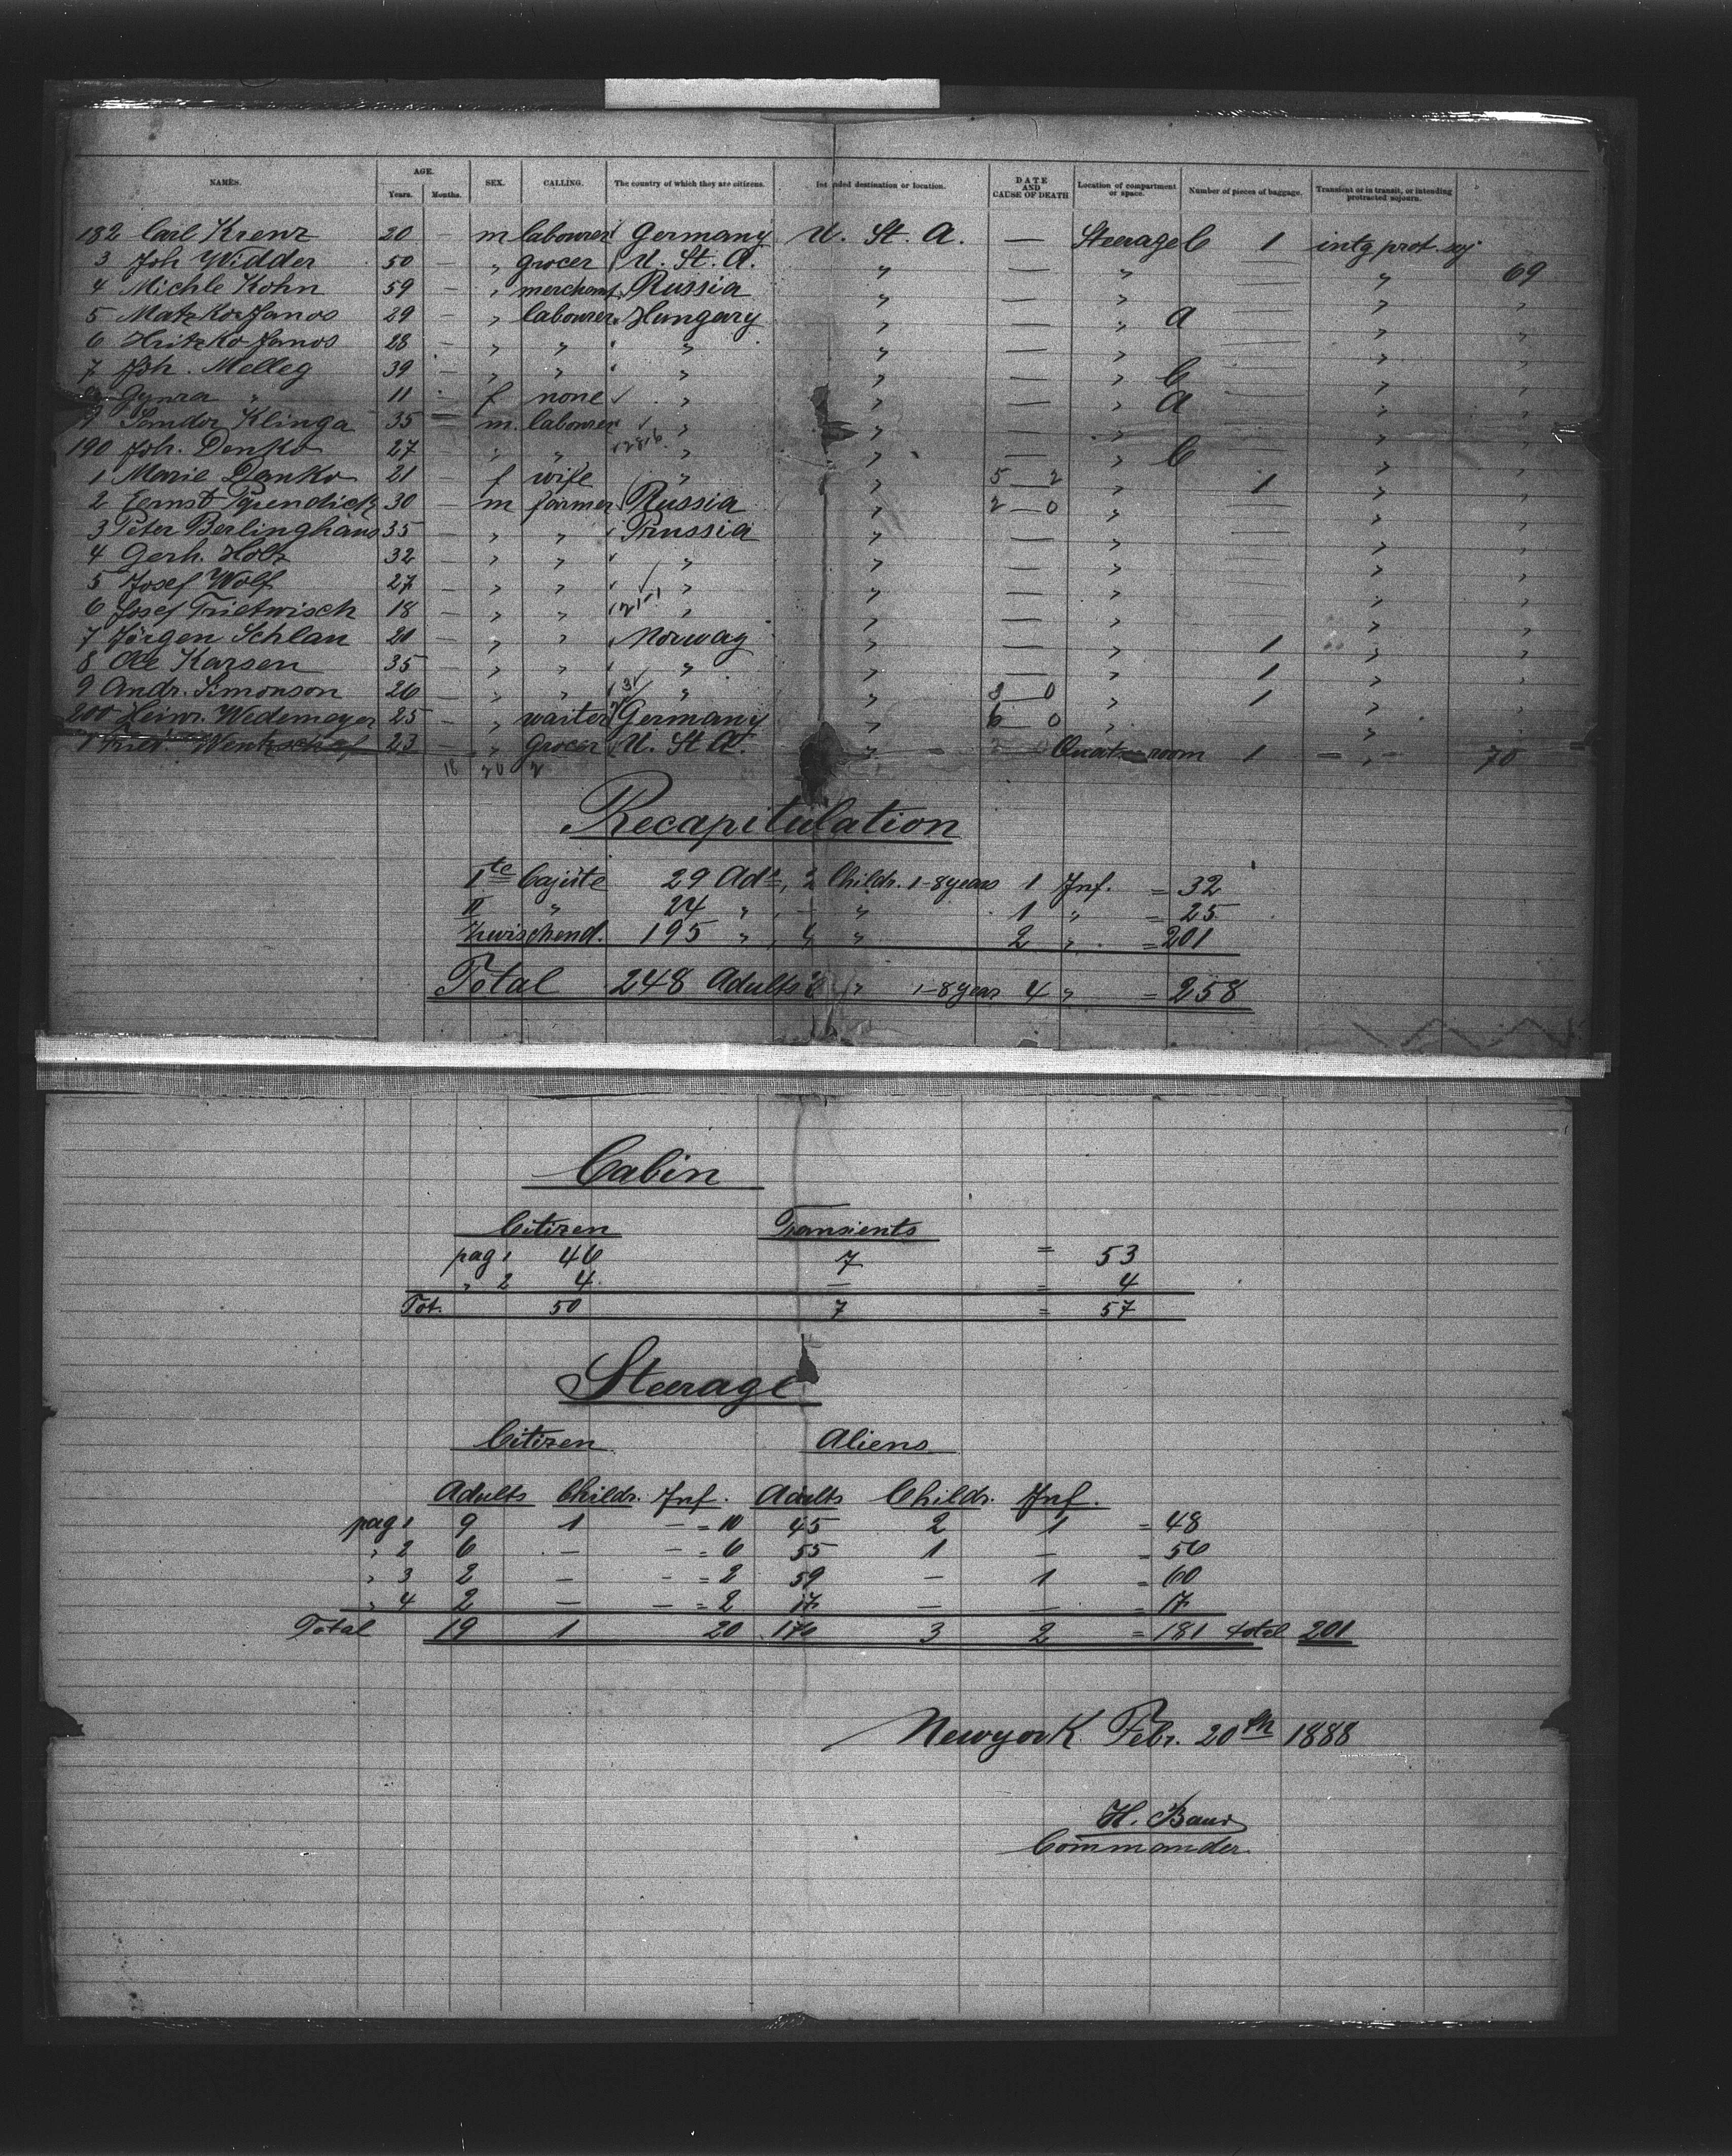 NAMES. AGE. Years. Months. SEX. CALLING. The country of which they are citizens. Intended destination or location. DATE AND CAUSE OF DEATH Location of compartment or space. Number of pieces of baggage. Transient or in transit, or intending protracted sojourn.
182 Carl Krenz 20 — m labourer Germany U. St. A. — Steerage C 1 intg prot. soj
3 Joh Widder 50 — " grocer U. St. A. " — " — " 69
4 Michle Kohn 59 — " merchant Russia " — " — " "
5 Matzko Janos 29 — " labourer Hungary " — " a — " "
6 Hritzko Janos 28 — " " " " — " — " "
7 Joh. Melleg 39 — " " " " — " C — " "
" 11 f none " " — " a — " "
9 Sandor Klinga 35 — m. labourer " " — " — " "
190 Joh. Denko 27 — " " " " — " C — " "
1 Marie Danko 21 — f wife " " 5 — 2 " 1 " "
2 Ernst 30 — m farmer Russia " 2 — 0 " — " "
3 Peter Berlinghaus 35 — " " Prussia " — " — " "
4 Gerh. Holtz 32 — " " " " — " — " "
5 Josef Wolf 27 — " " " " — " — " "
6 Josef Trietwisch 18 — " " " " — " — " "
7 Jörgen Schlau 20 — " " Norway " — " 1 " "
8 Ole Karsen 35 — " " " " — " 1 " "
9 Andr. Simonson 26 — " " " " 3 — 0 " 1 " "
200 Heinr. Wedemeyer 25 — " waiter Germany " 6 — 0 " " "
1 23 — " grocer U. St. A. " — room 1 — " — 70
18 20 2
Recapitulation
Ite Cajüte 29 Ads, 2 Childr. 1-8 years 1 Inf. = 32
II " 24 " , — " 1 " = 25
Zwischend. 195 " , 4 " 2 " = 201
Total 248 Adults 6 " 1-8 year 4 " = 258
Cabin
Citizen Transients
pag 1 46 7 = 53
" 2 4 — = 4
Tot. 50 7 = 57
Steerage
Citizen Aliens
Adults Childr. Inf. Adults Childr. Inf.
pag 1 9 1 — = 10 45 2 1 = 48
" 2 6 — — = 6 55 1 — = 56
" 3 2 — — = 2 59 — 1 = 60
" 4 2 — — = 2 17 — — = 17
Total 19 1 20 176 3 2 = 181 total 201
Newyork Febr. 20th 1888
H. Baur
Commander